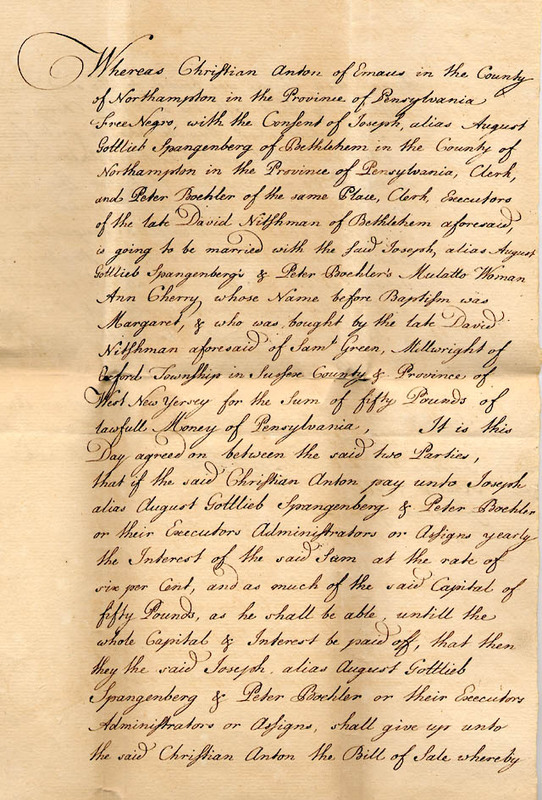 Whereas Christian Anton of Emaus in the County
of Northampton in the Province of Pensylvania
Free Negro, with the Consent of Joseph, alias August
Gottlieb Spangenberg of Bethlehem in the County of
Northampton in the Province of Pensylvania, Clerk,
and Peter Boehler of the same Place, Clerk, Executors
of the late David Nitshman of Bethlehem aforesaid,
is going to be married with the said Joseph, alias August
Gottlieb Spangenberg's & Peter Boehler's Mulatto Woman
Ann Cherry, whose Name before Baptism was
Margaret, & who was bought by the late David
Nitshman aforesaid of Saml Green, Millwright of
Oxford Township in Sussex County & Province of
West New Yersey for the Sum of fifty Pounds of
lawfull Money of Pensylvania, It is this
Day agreed on between the said two Parties,
that if the said Christian Anton pay unto Joseph
alias August Gottlieb Spangenberg & Peter Boehler
or their Executors Administrators or Assigns yearly
the Interest of the said Sum at the rate of
six per Cent, and as much of the said Capital of
fifty Pounds, as he shall be able, untill the
whole Capital & Interest be paid off, that then
they the said Joseph, alias August Gottlieb
Spangenberg & Peter Boehler or their Executors
Administrators or Assigns, shall give up unto
the said Christian Anton the Bill of Sale whereby